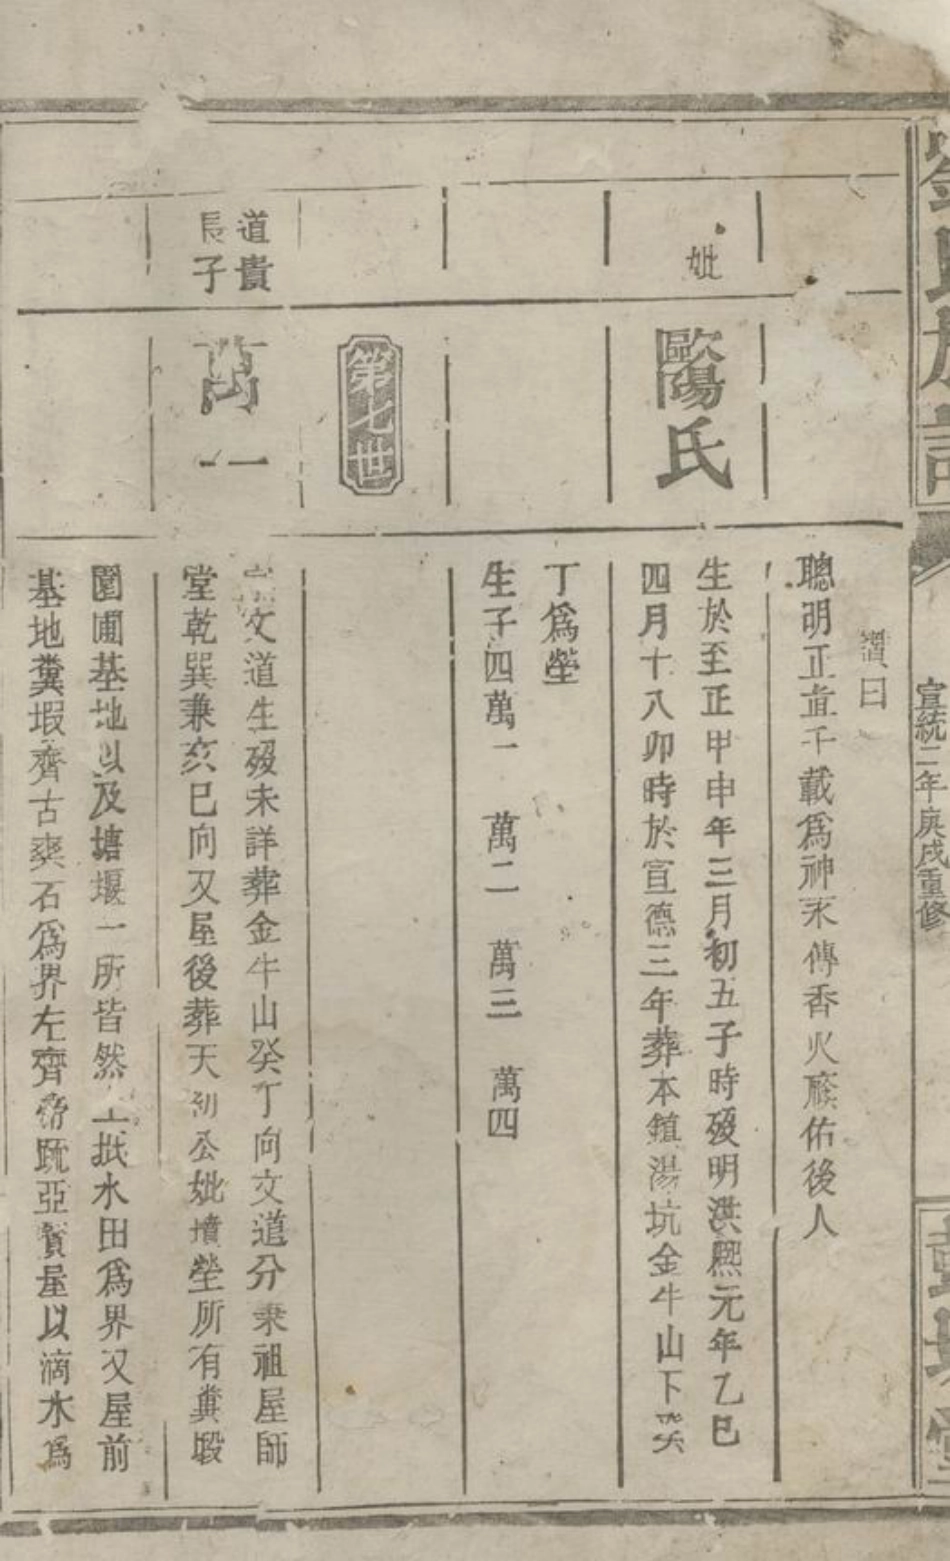 劉氏族譜
宣統二年庚戌重修
堂
讚曰
聰明正直千載為神永傳香火蔭佑後人
妣
歐陽氏
生於至正甲申年三月初五子時歿明洪熙元年乙巳
四月十八卯時於宣德三年葬本鎮湯坑金牛山下癸
丁為塋
生子四萬一 萬二 萬三 萬四
第七世
道貴
長子
萬一
文道生歿未詳葬金牛山癸丁向文道分秉祖屋師
堂乾巽兼亥巳向又屋後葬天初公妣墳塋所有糞塅
園圃基地以及塘堰一所皆然上抵水田為界又屋前
基地糞塅齊古爽石為界左齊帝跣亞賓屋以滴水為